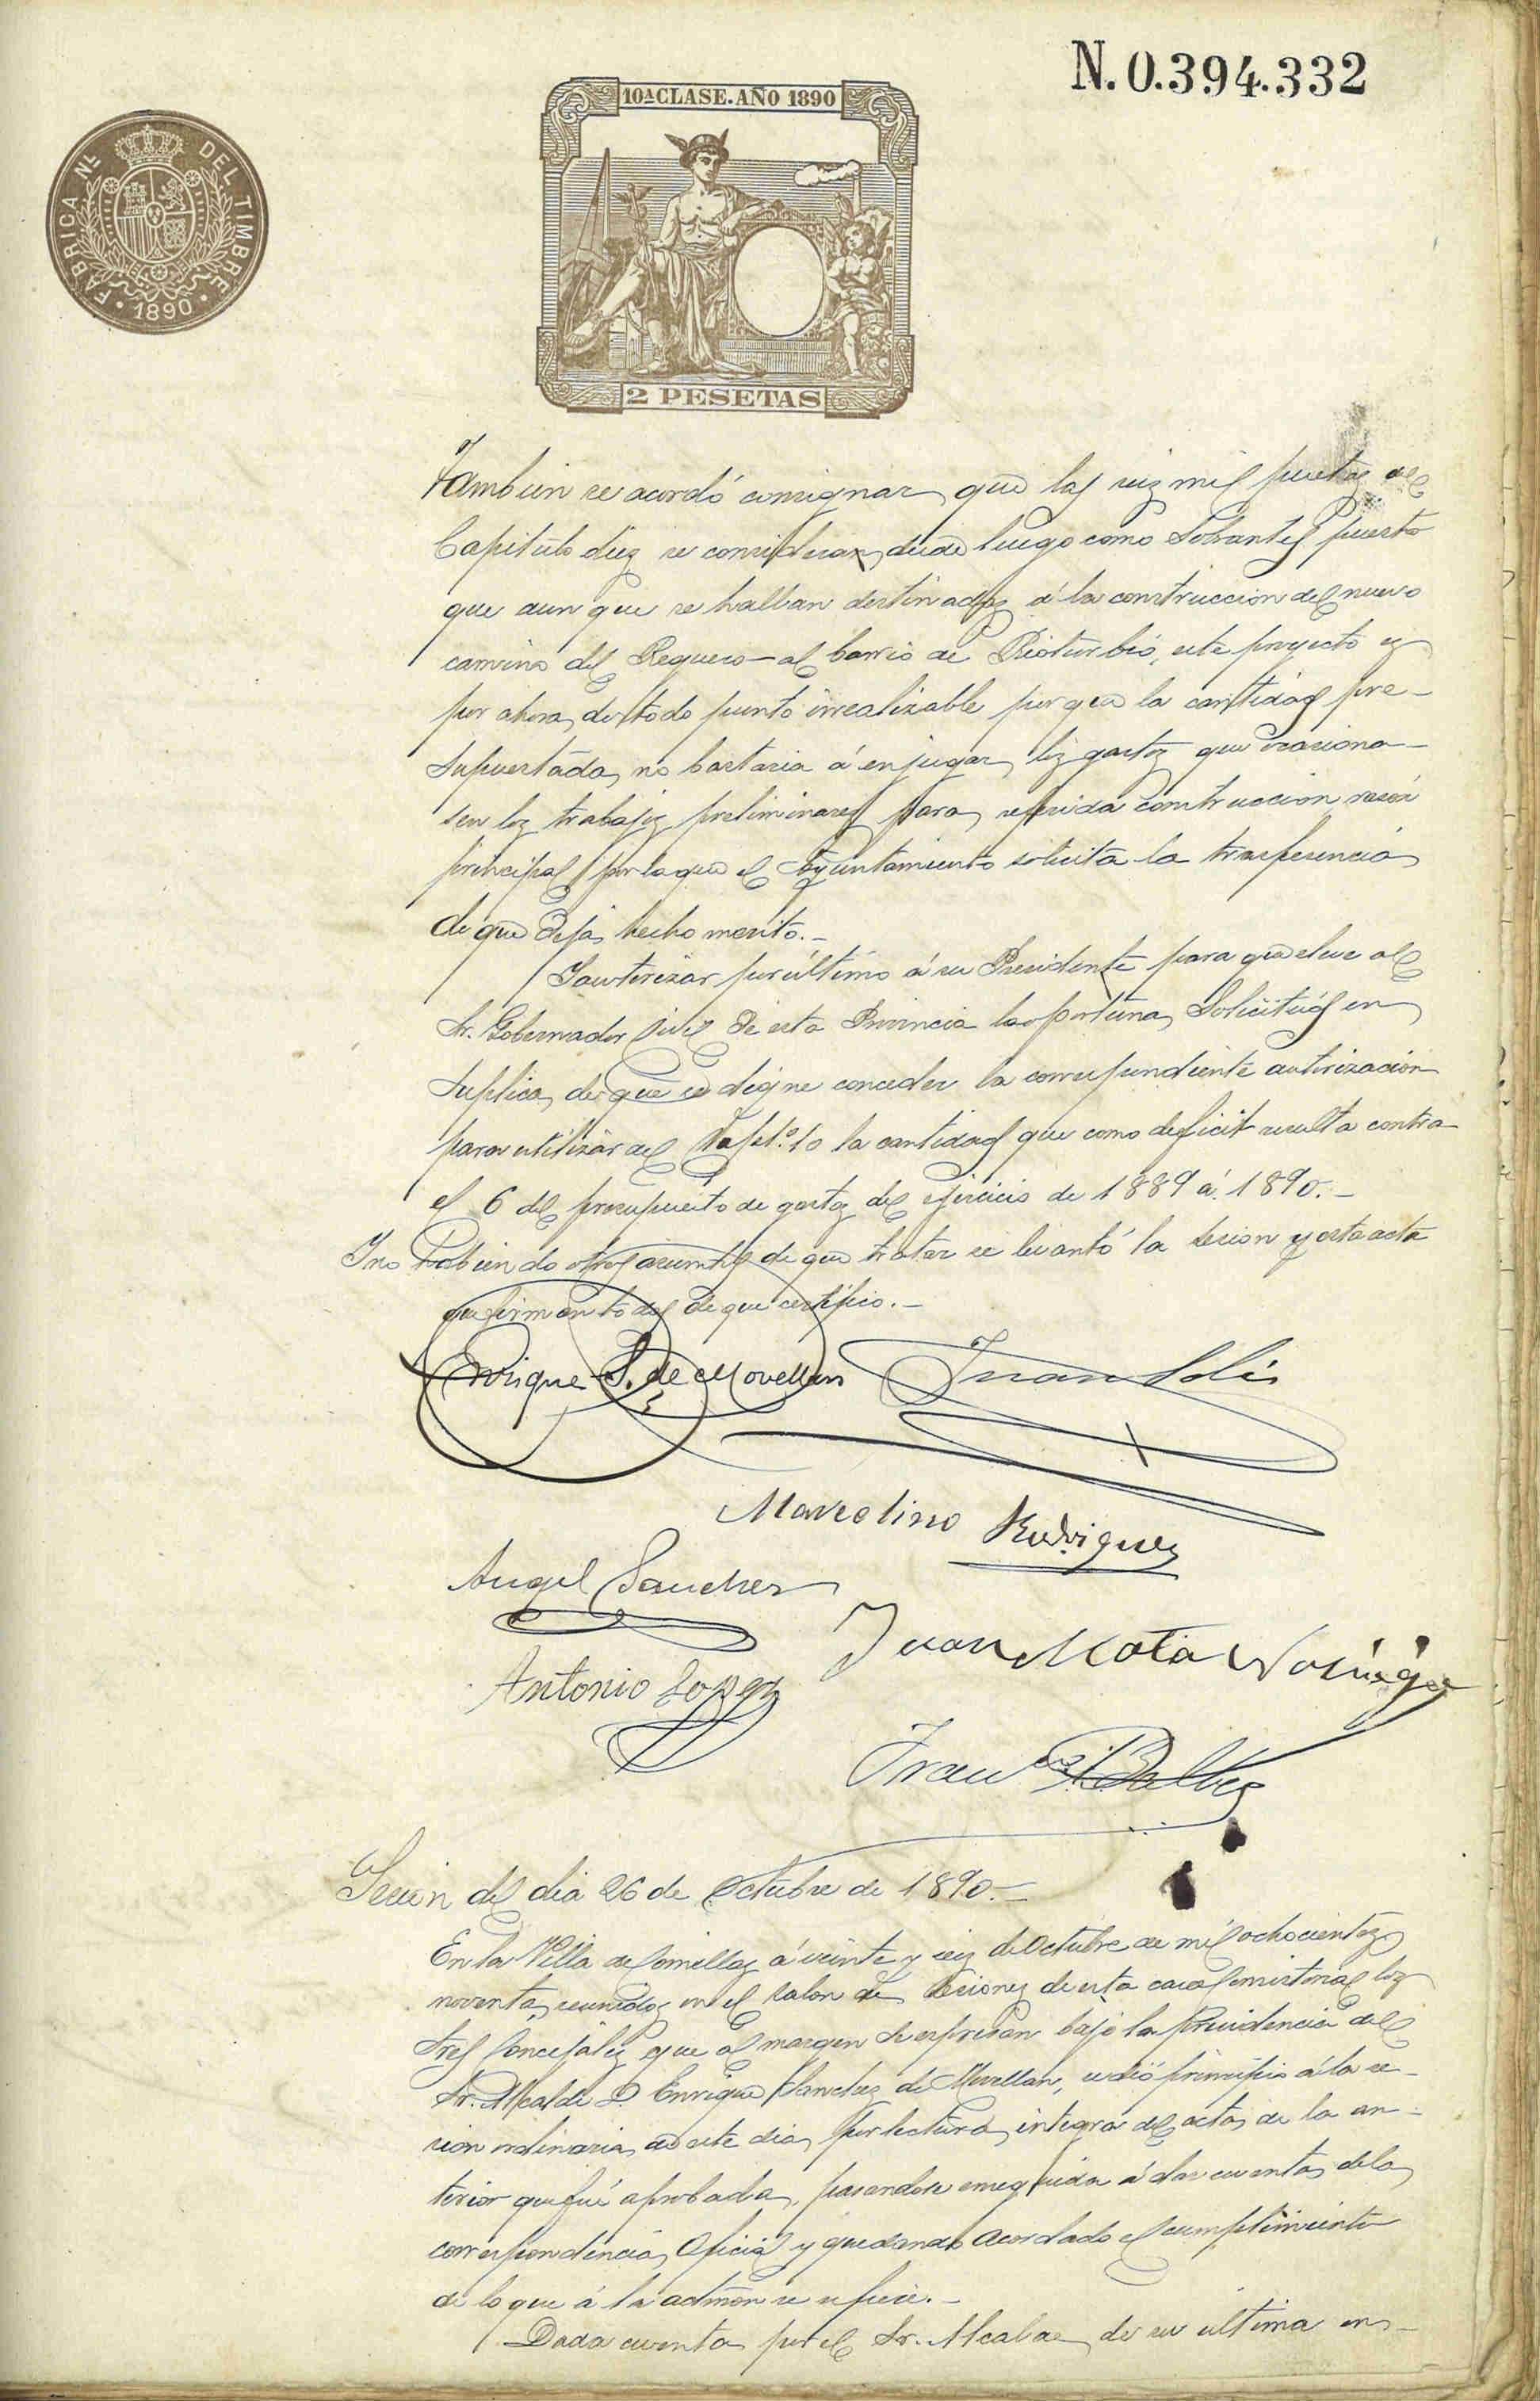 N. 0.394.332
10ª CLASE. AÑO 1890
FÁBRICA NL. DEL TIMBRE
· 1890 ·
2 PESETAS
Tambien se acordó consignar que las seis mil pesetas del
Capitulo diez se consideran desde luego como Sobrantes puesto
que aun que se hallan destinadas á la construccion del nuevo
camino del Reguero al barrio de Rioturbio, este proyecto es
por ahora, de todo punto irrealizable porque la cantidad pre-
supuestada, no bastaria á enjugar los gastos que ocasiona-
sen los trabajos preliminares para referida construccion razón
principal por la que el Ayuntamiento solicita la trasferencia
de que deja hecho merito.-
Y autorizar por último á su Presidente para que eleve al
Sr. Gobernador Civil de esta Provincia la oportuna Solicitud en
suplica de que se digne conceder la correspondiente autorizacion
para utilizar del Capit.º 10 la cantidad que como deficit resulta contra
el 6 del presupuesto de gastos del ejercicio de 1889 á 1890.-
Y no habiendo otros asuntos de que tratar se levantó la sesion y esta acta
que firman todos de que certifico.-
Enrique S. de Movellan Juan Solis
Marcelino Rodriguez
Angel Sanchez
Juan Mata Noriega
Antonio Lopez
Franco Balbas
Sesion del dia 26 de Octubre de 1890.-
En la Villa de Comillas á veinte y seis de Octubre de mil ochocientos
noventa, reunidos en el salon de sesiones de esta casa Consistorial los
Sres Concejales que al margen se expresan bajo la Presidencia del
Sr. Alcalde D. Enrique Sanchez de Movellan, se dió principio á la se-
sion ordinaria de este dia, por lectura integra del acta de la an-
terior que fué aprobada, pasandose enseguida á dar cuenta de la
correspondencia Oficial y quedando acordado el cumplimiento
de lo que á la admon se refiere.-
Dada cuenta por el Sr. Alcalde de su ultima en-